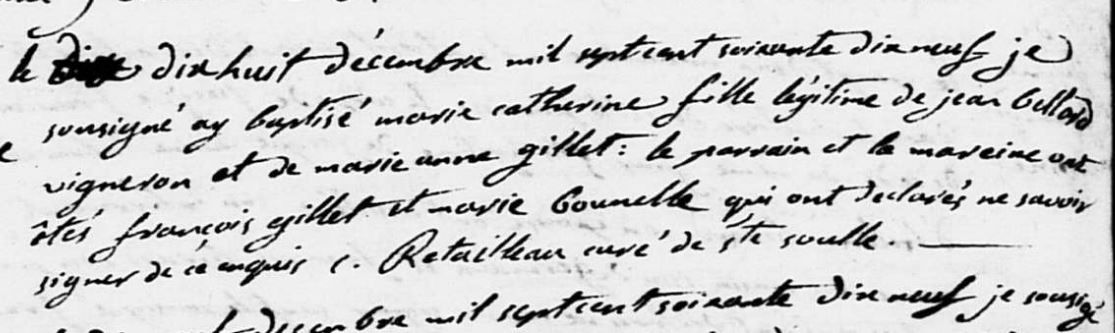 le dix huit décembre mil sept cent soixante dix neuf je
sousigné ay baptisé marie catherine fille légitime de jean bellard
vigneron et de marie anne gillet : le parrain et la mareine ont
étés françois gillet et marie bounelle qui ont declarés ne savoir
signer de ce enquis c. Retailleau curé de ste soulle.
decembre mil sept cent soixante dix neuf je sousigé